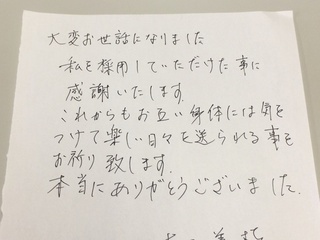 大変お世話になりました
私を採用していただけた事に
感謝いたします.
これからもお互い身体には気を
つけて楽しい日々を送られる事を
お祈り致します.
本当にありがとうございました.